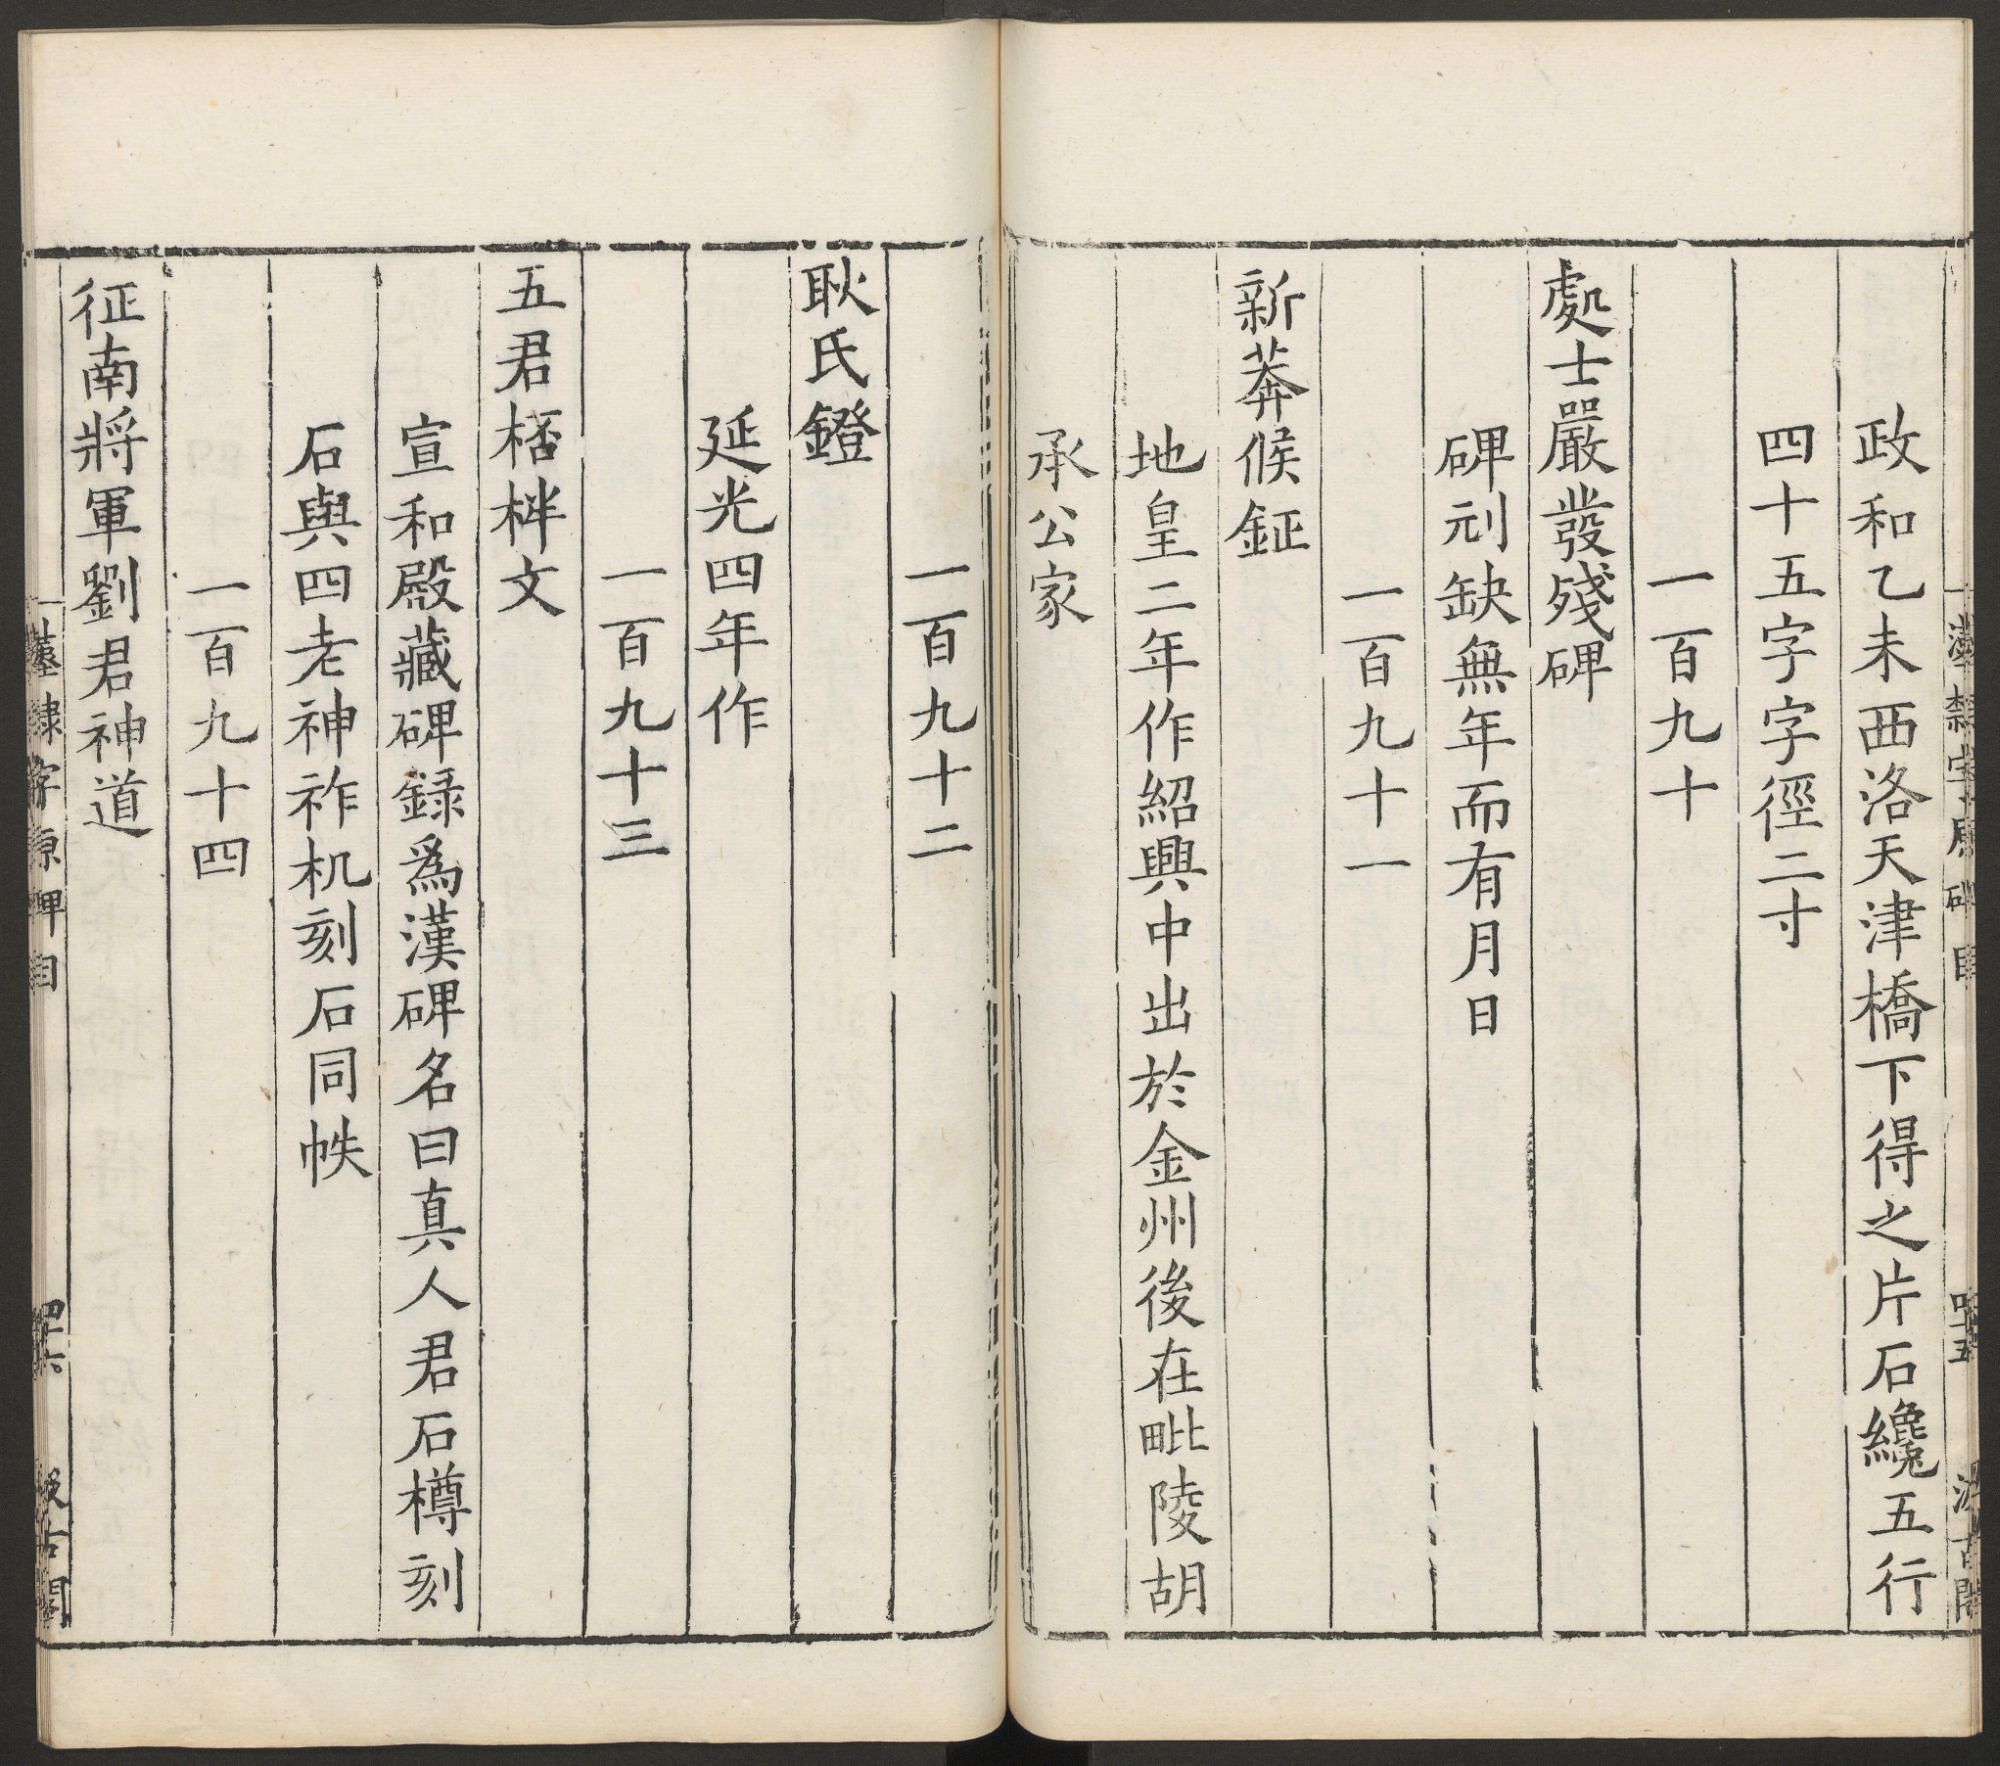 政和乙未西洛天津橋下得之片石纔五行
四十五字字徑二寸
一百九十
處士嚴發殘碑
碑刓缺無年而有月日
一百九十一
新莽候鉦
地皇二年作紹興中出於金州後在毗陵胡
承公家
一百九十二
耿氏鐙
延光四年作
一百九十三
五君桮柈文
宣和殿藏碑録爲漢碑名曰真人君石樽刻
石與四老神祚机刻石同帙
一百九十四
征南將軍劉君神道
漢隸字原碑目
四十六
汲古閣